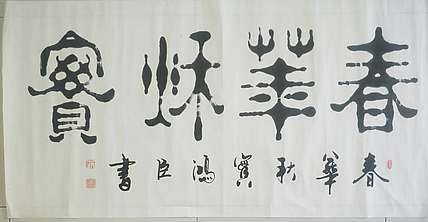 春華秋實
春華秋實鴻臣書